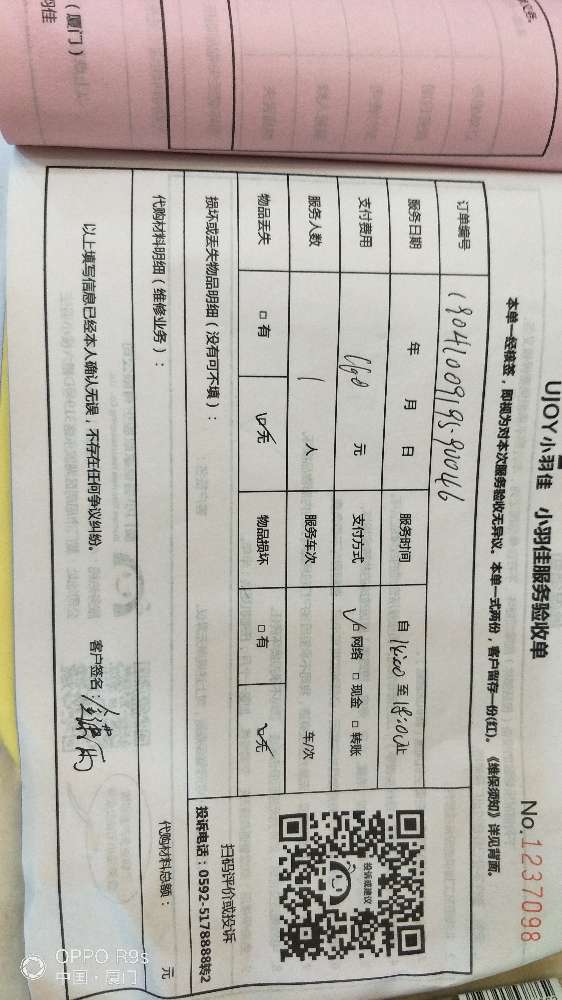 UJOY小羽佳 小羽佳服务验收单
No.1237098
本单一经接签，即视为对本次服务验收无异议。本单一式两份，客户留存一份(红)。《维保须知》详见背面。
订单编号 18041009195-90046
服务日期 年 月 日 服务时间 自 14:00 至 18:00止
支付费用 元 支付方式 ☑ 网络 □ 现金 □ 转账
服务人数 1 人 服务车次 车/次
物品丢失 □ 有 ☑ 无 物品损坏 □ 有 ☑ 无
投诉或建议
扫码评价或投诉
投诉电话：0592-5178888转2
损坏或丢失物品明细（没有可不填）：
代购材料明细（维修业务）：
代购材料总额： 元
以上填写信息已经本人确认无误，不存在任何争议纠纷。
客户签名：
（厦门）
羽佳
OPPO R9s
中国·厦门